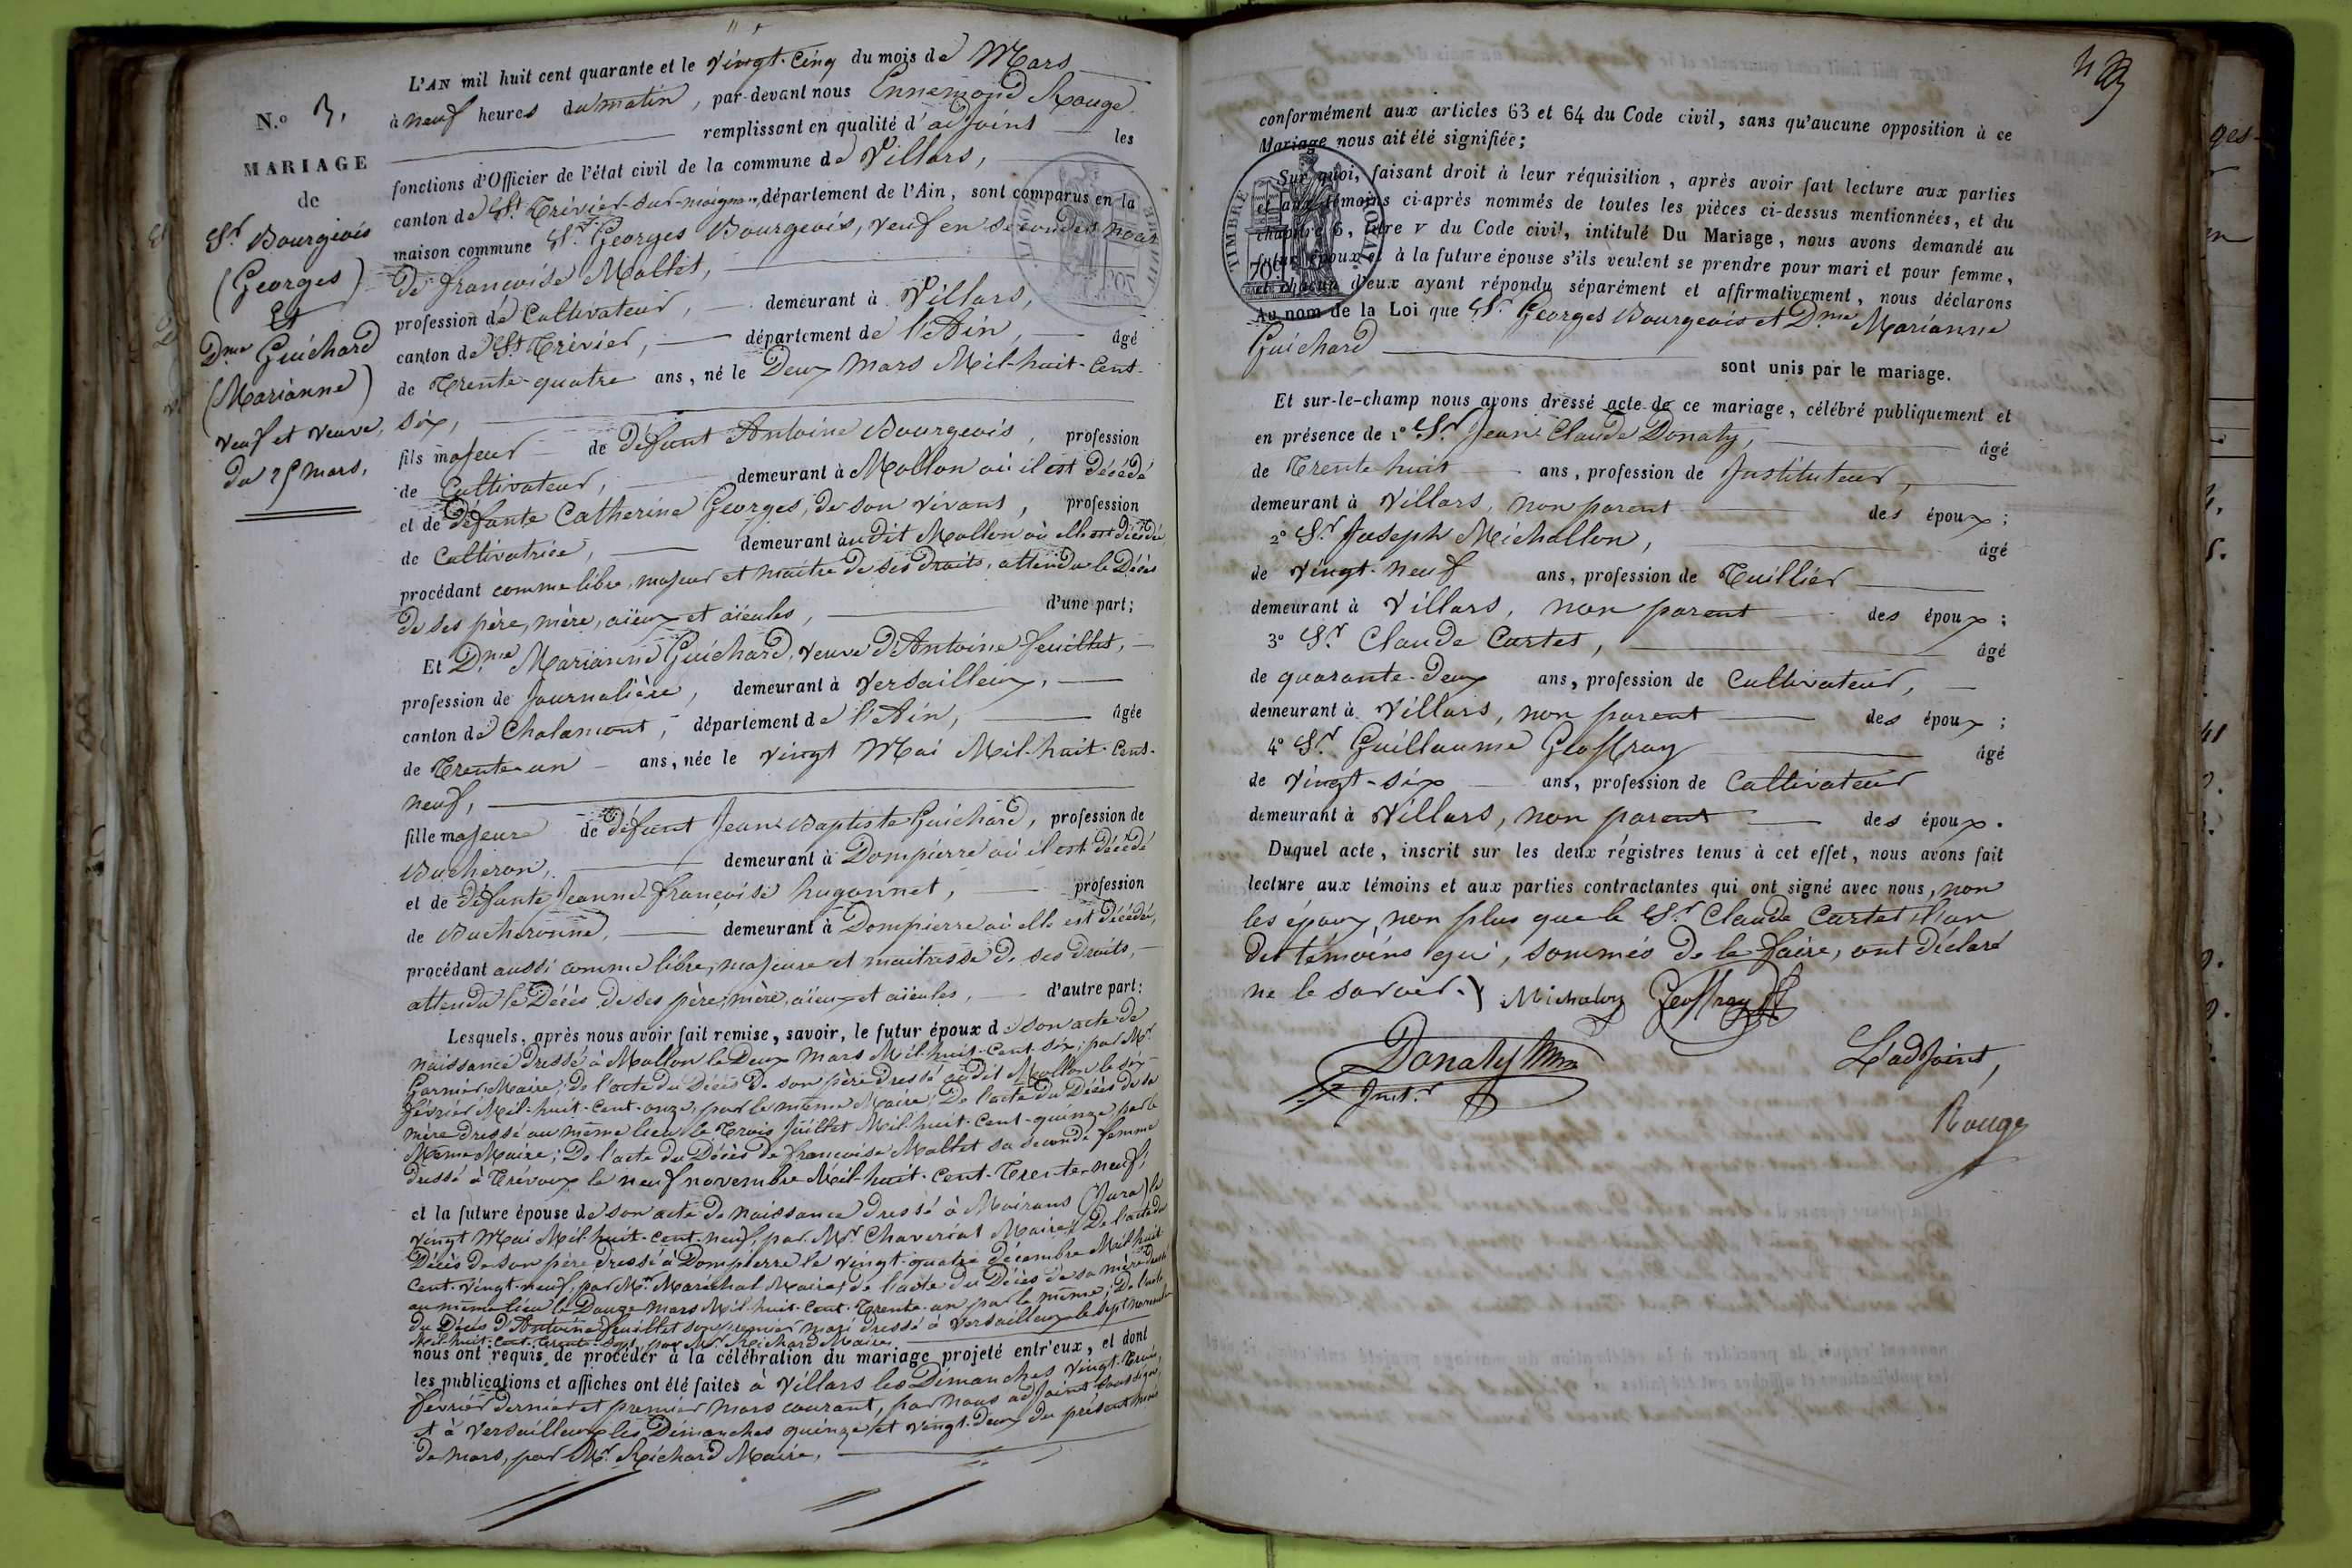 N.o 3.
MARIAGE
de
Sr Bourgeois
(Georges)
Et
Dme Guichard
(Marianne)
veuf et veuve,
du 25 mars.
L'AN mil huit cent quarante et le vingt-cinq du mois de Mars
à neuf heures du matin, par-devant nous Ennemond Rouge
remplissant en qualité d'adjoint les
fonctions d'Officier de l'état civil de la commune de Villars,
canton de St Trivier-sur-moignans, département de l'Ain, sont comparus en la
maison commune Sr Georges Bourgeois, veuf en secondes noces
de françoise Mallet,
profession de Cultivateur, demeurant à Villars,
canton de St Trivier, département de l'Ain, âgé
de Trente-quatre ans, né le Deux mars Mil-huit-cent-
six,
fils majeur de défunt Antoine Bourgeois, profession
de Cultivateur, demeurant à Mollon où il est décédé
et de défunte Catherine Georges, de son vivant, profession
de Cultivatrice, demeurant audit Mollon où elle est décédée,
procédant comme libre, majeur et maître de ses droits, attendu le Décès
de ses père, mère, aïeux et aïeules, d'une part;
Et Dme Marianne Guichard, veuve d'Antoine feuillet,
profession de Journalière, demeurant à Versailleux,
canton de Chalamont, département de l'Ain, âgée
de Trente-un ans, née le vingt Mai Mil-huit-cent-
neuf,
fille majeure de défunt Jean-Baptiste Guichard, profession de
Bucheron, demeurant à Dompierre où il est décédé
et de défunte Jeanne-françoise hugonnet, profession
de Bucheronne, demeurant à Dompierre où elle est décédée,
procédant aussi comme libre, majeure et maitresse de ses droits,
attendu le Décès de ses père, mère, aïeux et aïeules, d'autre part:
Lesquels, après nous avoir fait remise, savoir, le futur époux de son acte de
naissance dressé à Mollon le Deux mars Mil-huit-cent-six, par Mr
Garnier Maire; de l'acte du Décès de son père dressé audit Mollon le six
février Mil-huit-cent-onze, par le même Maire; De l'acte du Décès de sa
mère dressé au même lieu le Trois Juillet Mil-huit-cent-quinze, par le
Même Maire; De l'acte du Décès de françoise Mallet sa seconde femme
dressé à Trévoux le neuf novembre Mil-huit-cent-Trente-neuf;
et la future épouse de son acte de naissance dressé à Moirans (Jura) le
vingt Mai Mil-huit-cent-neuf, par Mr Chaveriat Maire; De l'acte du
Décès de son père dressé à Dompierre le vingt-quatre décembre Mil-huit-
cent-vingt-neuf, par Mr Maréchal Maire; de l'acte du Décès de sa mère dressé
au même lieu le Douze mars Mil-huit-cent-Trente-un par le même; De l'acte
du Décès d'Antoine feuillet son premier mari dressé à Versailleux le sept novembre
Mil-huit-cent-trente-sept, par Mr Richard Maire.
nous ont requis de procéder à la célébration du mariage projeté entr'eux, et dont
les publications et affiches ont été faites à Villars les Dimanches vingt-trois
février dernier et premier mars courant, par nous adjoint, soussigné,
et à Versailleux les Dimanches quinze et vingt-deux du présent mois
de mars, par Mr Richard Maire,
conformément aux articles 63 et 64 du Code civil, sans qu'aucune opposition à ce
Mariage nous ait été signifiée;
TIMBRE ROYAL
Sur quoi, faisant droit à leur réquisition, après avoir fait lecture aux parties
et aux témoins ci-après nommés de toutes les pièces ci-dessus mentionnées, et du
chapitre 6, titre V du Code civil, intitulé Du Mariage, nous avons demandé au
futur époux et à la future épouse s'ils veulent se prendre pour mari et pour femme,
et chacun d'eux ayant répondu séparément et affirmativement, nous déclarons
Au nom de la Loi que Sr Georges Bourgeois et Dme Marianne
Guichard
sont unis par le mariage.
Et sur-le-champ nous avons dressé acte de ce mariage, célébré publiquement et
en présence de 1o Sr Jean Claude Donaty, âgé
de Trente huit ans, profession de Instituteur,
demeurant à Villars, non parent des époux;
2o Sr Joseph Michallon, âgé
de vingt-neuf ans, profession de Tuillier
demeurant à Villars, non parent des époux;
3o Sr Claude Cartet, âgé
de quarante-deux ans, profession de Cultivateur,
demeurant à Villars, non parent des époux;
4o Sr Guillaume Geoffray âgé
de vingt-six ans, profession de Cultivateur
demeurant à Villars, non parent des époux.
Duquel acte, inscrit sur les deux régistres tenus à cet effet, nous avons fait
lecture aux témoins et aux parties contractantes qui ont signé avec nous, non
les époux, non plus que le Sr Claude Cartet l'un
des témoins qui, sommés de le faire, ont déclaré
ne le savoir.
Michalon Geoffray
Donaty
Instr
L'adjoint,
Rouge